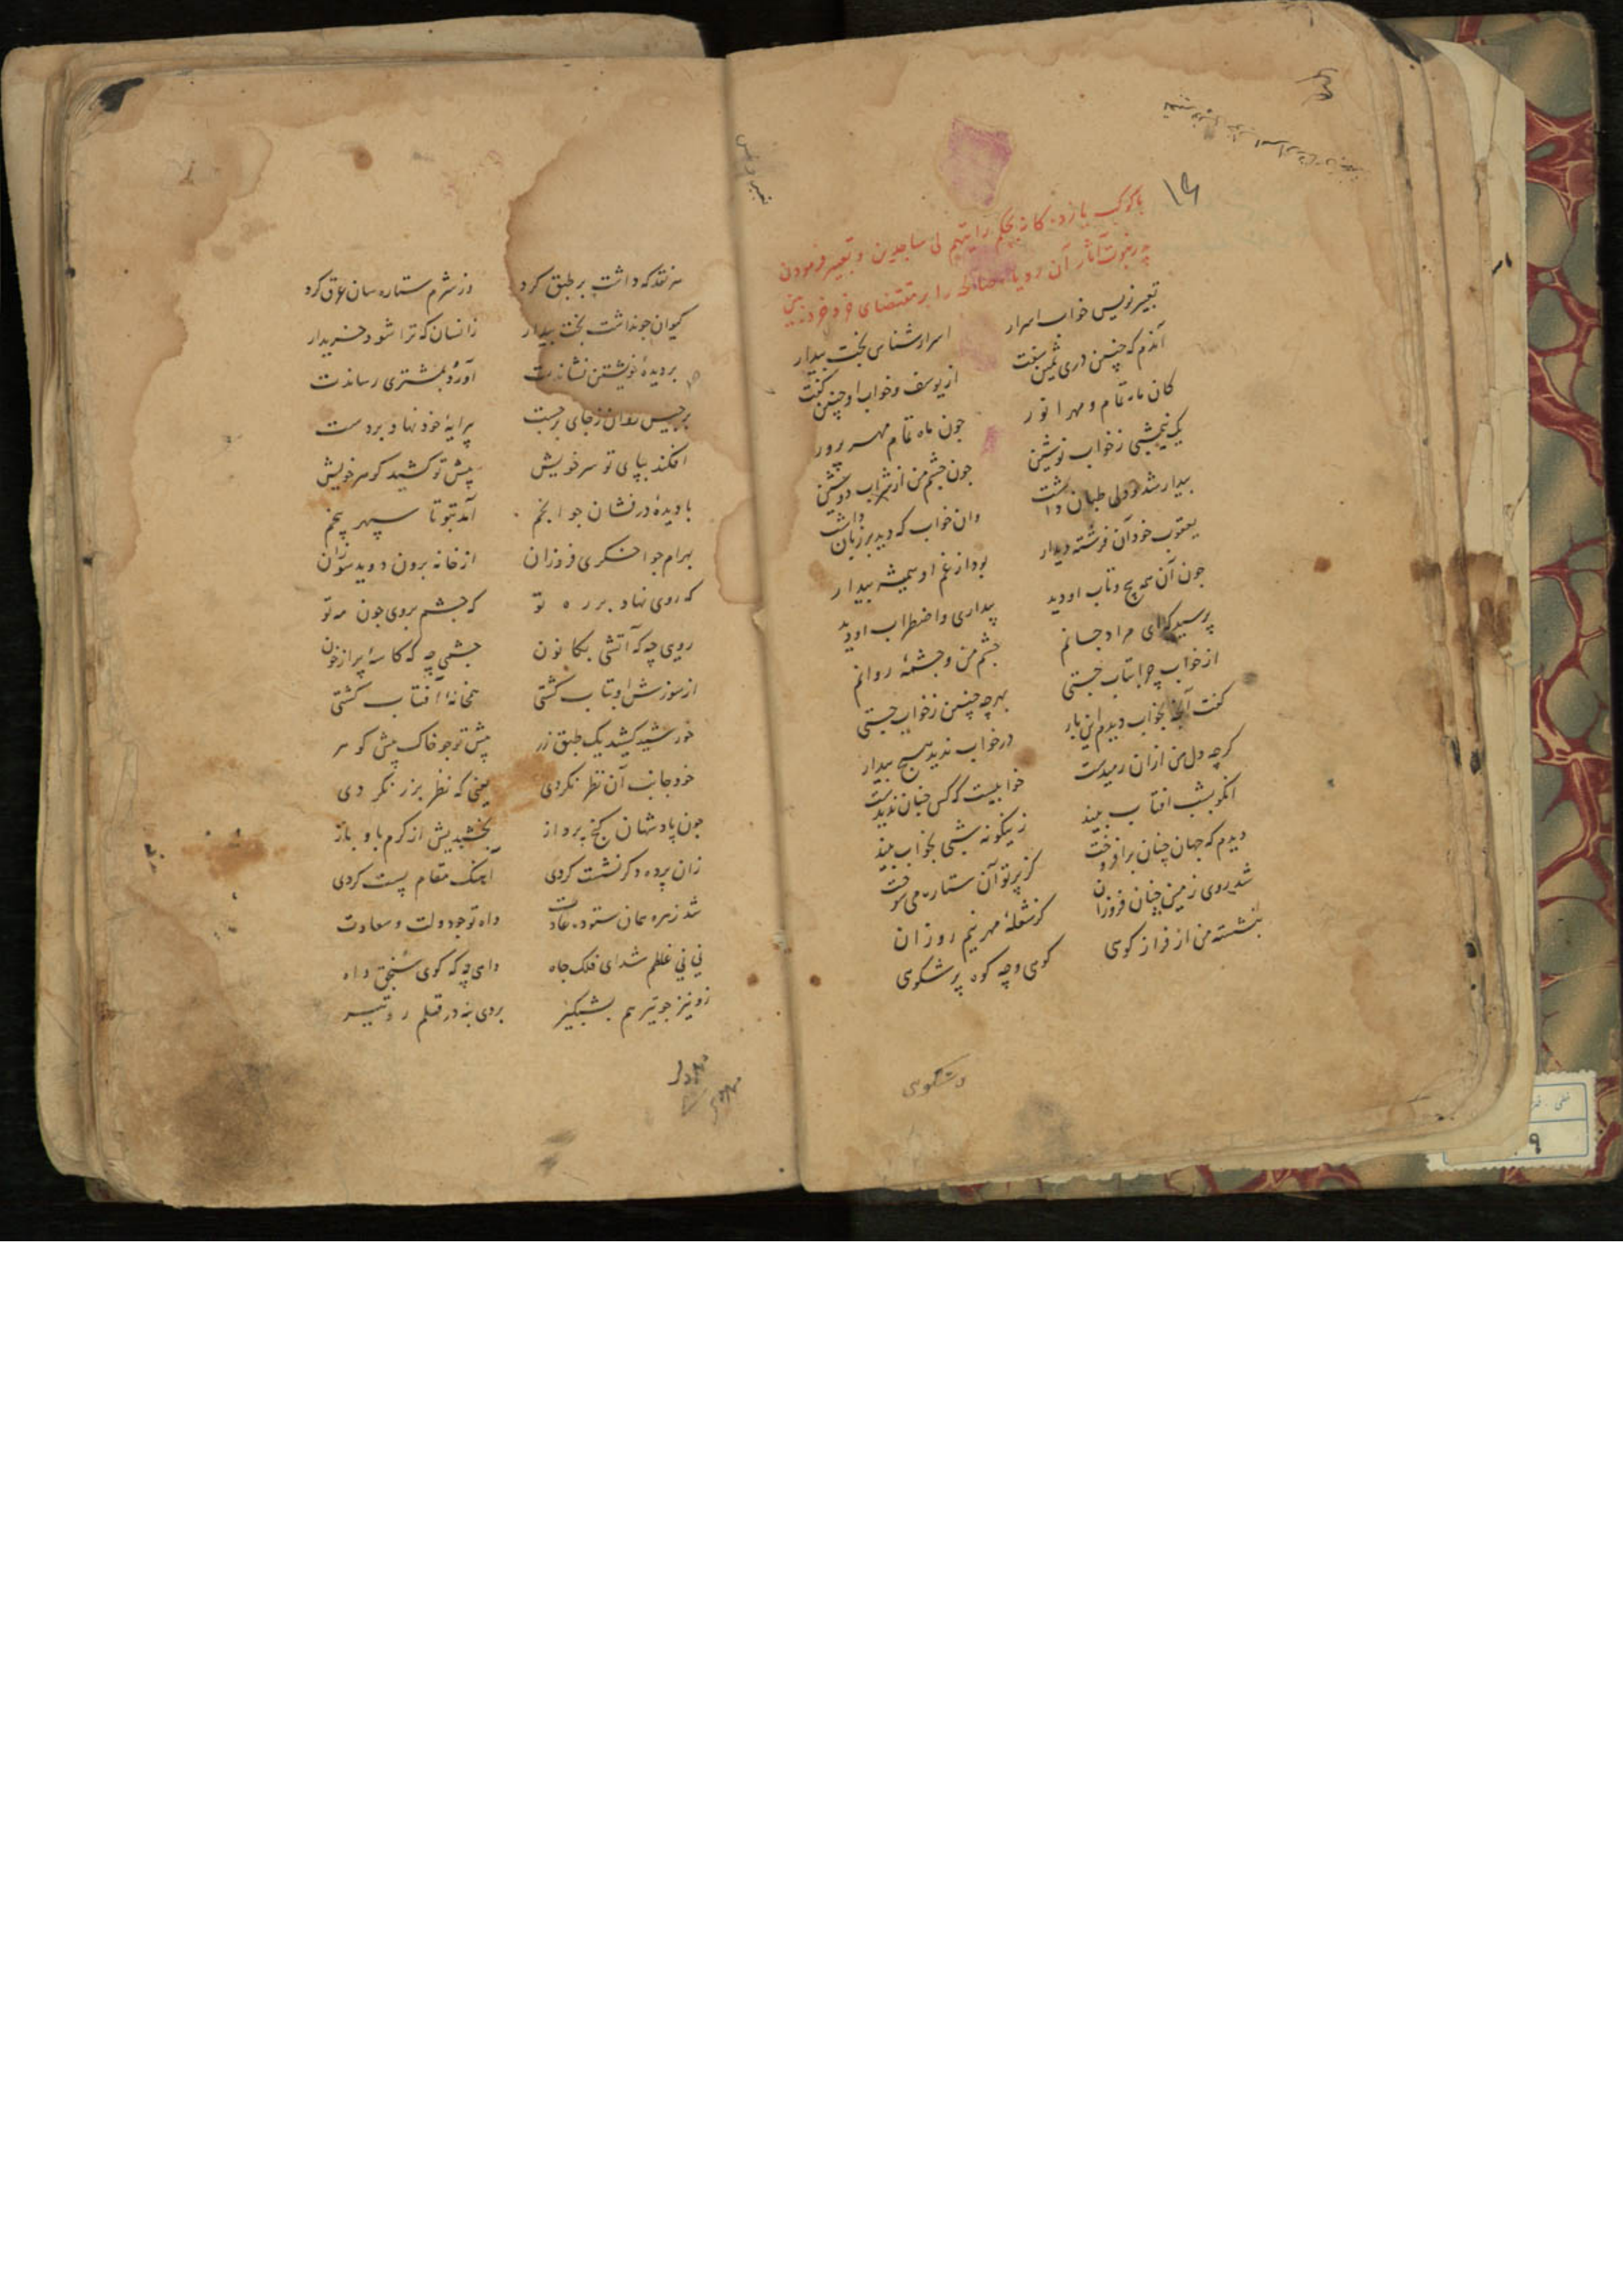 با کوکب یازده کانه بحکم رایتهم لی ساجدین و تعبیر فرمودن
آثار آن رویا صالحه را بر مقتضای خرد خرده بین
تعبیر نویس خواب اسرار اسرار شناس بخت بیدار
آندم که چنین دری ثمین سفت از یوسف و خواب او چنین گفت
کان ماه تمام و مهر انور جون ماه تمام مهر پرور
یک نیمشبی ز خواب نوشین جون چشم من از شراب دوشین
بیدار شد و دلی طپان داشت وان خواب که دید بر زبان داشت
یعقوب خود آن فرشته دیدار بود از غم او همیشه بیدار
جون آن همه پیچ و تاب او دید بیداری و اضطراب او دید
پرسید که ای مراد جانم چشم من و چشمه روانم
از خواب چرا بتاب جستی بهر چه چنین ز خواب جستی
گفت آنچه بخواب دیدم این بار در خواب ندید هیچ بیدار
گرچه دل من ازان رمیدست خوابیست که کس چنان ندیدست
آنکو بشب افتاب بیند زینگونه شبی بخواب بیند
دیدم که جهان چنان برافروخت کز پرتو آن ستاره می سوخت
شد روی زمین چنان فروزان کز شعله مهر نیم روزان
بنشسته من از فراز کوی کوی و چه کوه پر شکوی
و شکوی
مه نقد که داشت بر طبق کرد وز شرم ستاره سان عرق کرد
کیوان جو نداشت بخت بیدار زانسان که ترا شود خریدار
بر دیده خویشتن نشاندت آورد بمشتری رساندت
برجیس روان ز جای برجست پیرایه خود نهاد بر دست
افکند بپای تو سر خویش پیش تو کشید گوهر خویش
با دیده درفشان جو انجم آمد بتو تا سپهر پنجم
بهرام جو اخکری فروزان از خانه برون دوید سوزان
که روی نهاد بر ره تو که چشم بروی جون مه تو
روی چه که آتشی بکانون چشمی چه که کاسه پر از خون
از سوزش او بتاب کشتی همخانه آفتاب کشتی
خورشید کشید یک طبق زر پیش تو جو خاک پیش گوهر
خود جانب آن نظر نکردی یعنی که نظر بزر نکردی
جون پادشهان کنج پرداز بخشیدیش از کرم باو باز
زان پرده دگر نشست کردی آهنک مقام پست کردی
شد زهره بسان ستوده عادت داه تو جو دولت و سعادت
نی نی غلطم شد ای فلک جاه داهی چه که گوی سنجق داه
زو نیز جو تیر هم بشبگیر بردی بنه در قلم رو تیر